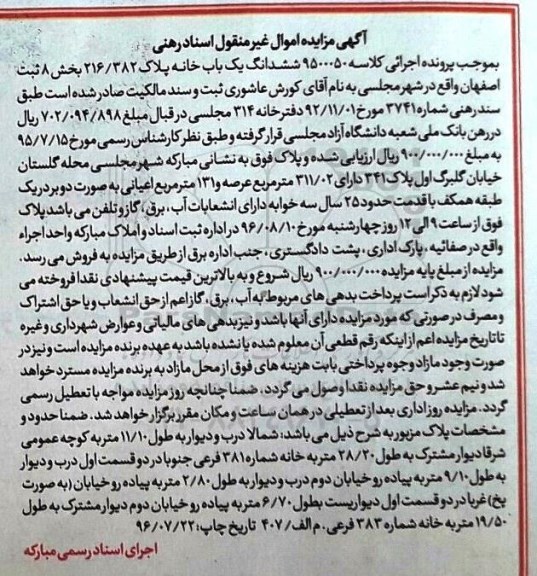 آگهی مزایده اموال غیر منقول اسناد رهنی
بموجب پرونده اجرائی کلاسه ۹۵۰۰۰۵۰ ششدانگ یک باب خانه پلاک ۲۱۶/۳۸۲ بخش ۸ ثبت
اصفهان واقع در شهر مجلسی به نام آقای کورش عاشوری ثبت و سند مالکیت صادر شده است طبق
سند رهنی شماره ۳۷۴۱ مورخ ۹۲/۱۱/۰۱ دفترخانه ۳۱۴ مجلسی در قبال مبلغ ۷۰۲/۰۹۴/۸۹۸ ریال
در رهن بانک ملی شعبه دانشگاه آزاد مجلسی قرار گرفته و طبق نظر کارشناس رسمی مورخ ۹۵/۷/۱۵
به مبلغ ۹۰۰/۰۰۰/۰۰۰ ریال ارزیابی شده و پلاک فوق به نشانی مبارکه شهر مجلسی محله گلستان
خیابان گلبرگ اول پلاک ۳۴۱ دارای ۳۱۱/۰۲ مترمربع عرصه و ۱۳۱ مترمربع اعیانی به صورت دو بر در یک
طبقه همکف با قدمت حدود ۲۵ سال سه خوابه دارای انشعابات آب، برق، گاز و تلفن می باشد پلاک
فوق از ساعت ۹ الی ۱۲ روز چهارشنبه مورخ ۹۶/۰۸/۱۰ در اداره ثبت اسناد و املاک مبارکه واحد اجراء
واقع در صفائیه، پارک اداری، پشت دادگستری، جنب اداره برق از طریق مزایده به فروش می رسد.
مزایده از مبلغ پایه مزایده ۹۰۰/۰۰۰/۰۰۰ ریال شروع و به بالاترین قیمت پیشنهادی نقدا فروخته می
شود لازم به ذکر است پرداخت بدهی های مربوط به آب، برق، گاز اعم از حق انشعاب و یا حق اشتراک
و مصرف در صورتی که مورد مزایده دارای آنها باشد و نیز بدهی های مالیاتی و عوارض شهرداری و غیره
تا تاریخ مزایده اعم از اینکه رقم قطعی آن معلوم شده یا نشده باشد به عهده برنده مزایده است و نیز در
صورت وجود مازاد وجوه پرداختی بابت هزینه های فوق از محل مازاد به برنده مزایده مسترد خواهد
شد و نیم عشر و حق مزایده نقدا وصول می گردد. ضمنا چنانچه روز مزایده مواجه با تعطیل رسمی
گردد. مزایده روز اداری بعد از تعطیلی در همان ساعت و مکان مقرر برگزار خواهد شد. ضمنا حدود و
مشخصات پلاک مزبور به شرح ذیل می باشد: شمالا درب و دیوار به طول ۱۱/۱۰ متر به کوچه عمومی
شرقا دیوار مشترک به طول ۲۸/۲۰ متر به خانه شماره ۳۸۱ فرعی جنوبا در دو قسمت اول درب و دیوار
به طول ۹/۱۰ متر به پیاده رو خیابان دوم درب و دیوار به طول ۲/۸۰ متر به پیاده رو خیابان (به صورت
پخ) غربا در دو قسمت اول دیواریست بطول ۶/۷۰ متر به پیاده رو خیابان دوم دیوار مشترک به طول
۱۹/۵۰ متر به خانه شماره ۳۸۳ فرعی. م الف/۴۰۷ تاریخ چاپ: ۹۶/۰۷/۲۲
اجرای اسناد رسمی مبارکه